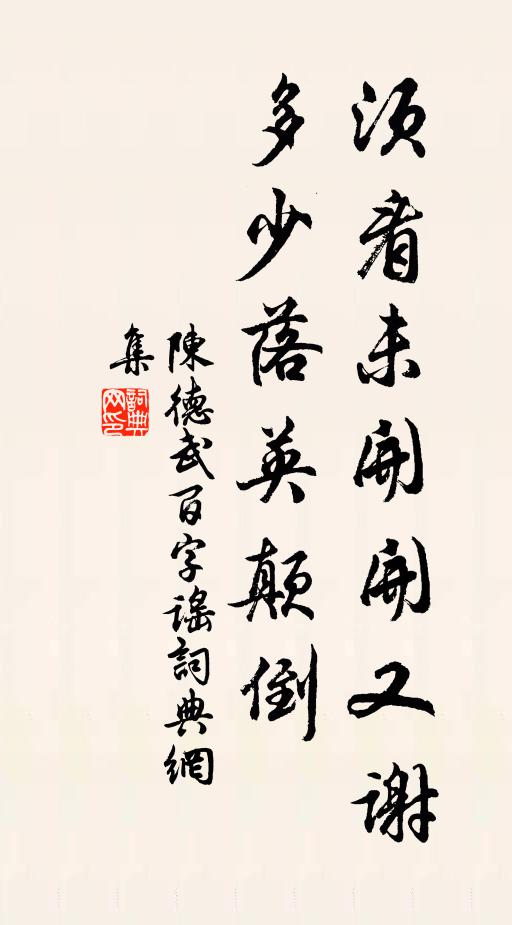 須看未開開又謝
多少落英顛倒
陳德武百字謠詞典網
集
詞典
网印